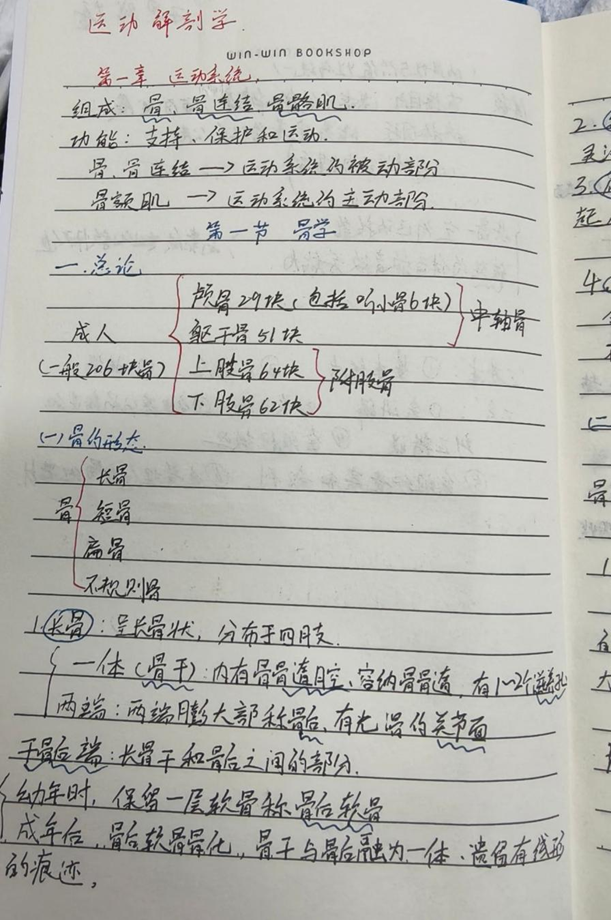 运动解剖学.
WIN-WIN BOOKSHOP
第一章 运动系统.
组成: 骨、骨连结 骨骼肌.
功能: 支持、保护和运动.
骨、骨连结 —> 运动系统的被动部分
骨骼肌 —> 运动系统的主动部分.
第一节 骨学
一.总论
颅骨29块(包括 听小骨6块)
躯干骨51块
中轴骨
成人
(一般206块骨)
上肢骨64块
下肢骨62块
附肢骨
(一)骨的形态.
骨
长骨
短骨
扁骨
不规则骨
1.长骨: 呈长骨状, 分布于四肢.
一体(骨干): 内有骨骨遀腔、容纳骨骨遀, 有1~2个滋养孔
两端: 两端膨大部称骨后、有光滑的关节面
干骨后端: 长骨干和骨后之间的部分.
幼年时, 保留一层软骨称骨后软骨
成年后, 骨后软骨骨化, 骨干与骨后融为一体、遗留有线形
的痕迹,
2.
3.
起
4
骨
1
大